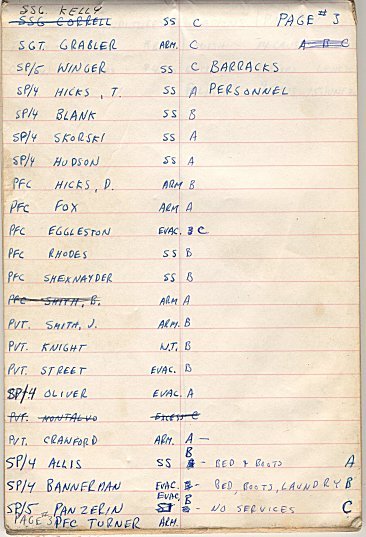 SSG KELLY
SSG CORRELL SS C PAGE #3
SGT. GRABLER ARM. C A B C
SP/5 WINGER SS C BARRACKS
SP/4 HICKS, T. SS A PERSONNEL
SP/4 BLANK SS B
SP/4 SKORSKI SS A
SP/4 HUDSON SS A
PFC HICKS, D. ARM B
PFC FOX ARM A
PFC EGGLESTON EVAC. C
PFC RHODES SS B
PFC SHEKNAYDER SS B
PFC SMITH, B. ARM A
PVT. SMITH, J. ARM. B
PVT. KNIGHT W.T. B
PVT. STREET EVAC. B
SP/4 OLIVER EVAC. A
PVT. MONTALVO EXCESS C
PVT. CRANFORD ARM. A —
SP/4 ALLIS SS B - BED & BOOTS A
SP/4 BANNERMAN EVAC. B - BED, BOOTS, LAUNDRY B
SP/5 PANZERIN EVAC, B - NO SERVICES C
PAGE #3 PFC TURNER ARM.